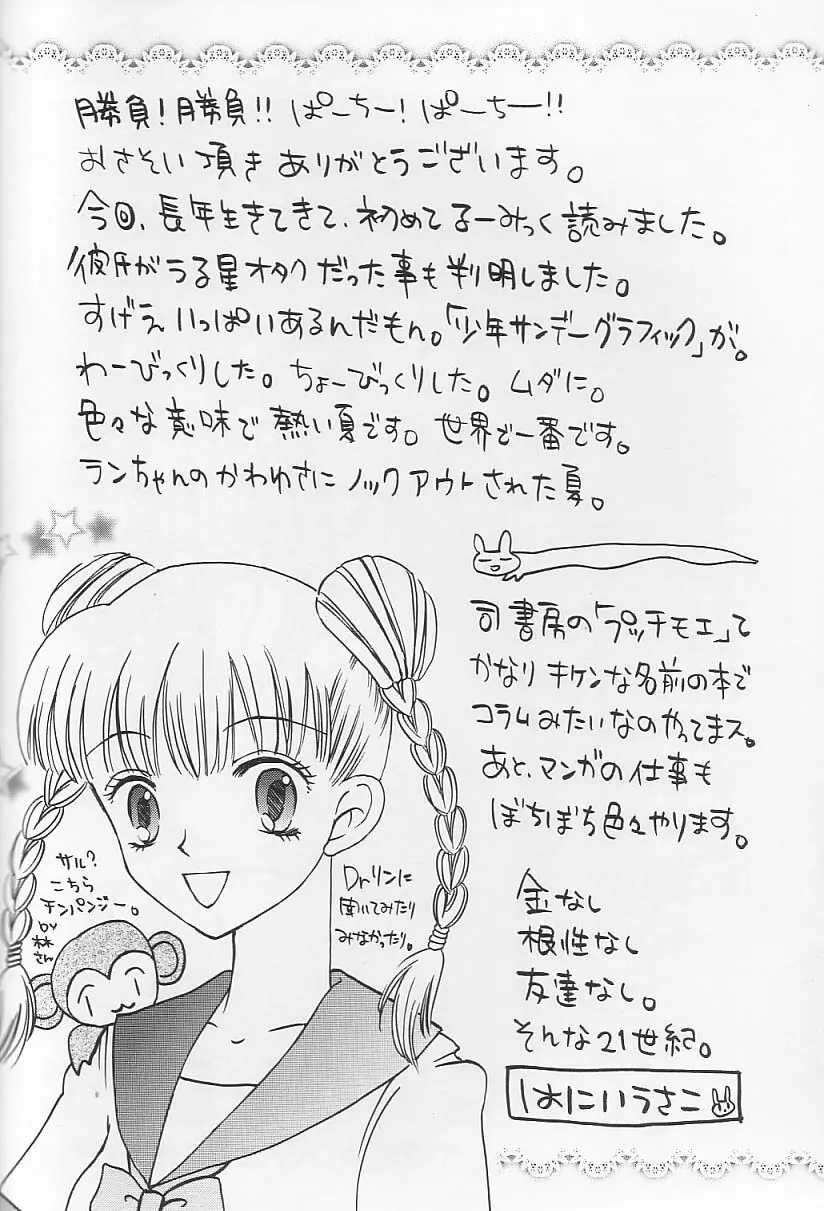 勝負!勝負!!ぱーちー!ぱーちー!!
おさそい頂きありがとうございます。
今回、長年生きてきて、初めてるーみっく読みました。
彼氏がうる星オタクだった事も判明しました。
すげえいっぱいあるんだもん。「少年サンデーグラフィック」が。
わーびっくりした。ちょーびっくりした。ムダに。
色々な意味で熱い夏です。世界で一番です。
ランちゃんのかわゆさにノックアウトされた夏。
司書房の「プッチモエ」て
かなりキケンな名前の本で
コラムみたいなのやってまス。
あと、マンガの仕事も
ぼちぼち色々やります。
金なし
根性なし
友達なし。
そんな21世紀。
はにいうさこ
サル?
こちら
チンパンジー。
by
林さん
Dr.リンに
聞いてみたり
みなかったり。